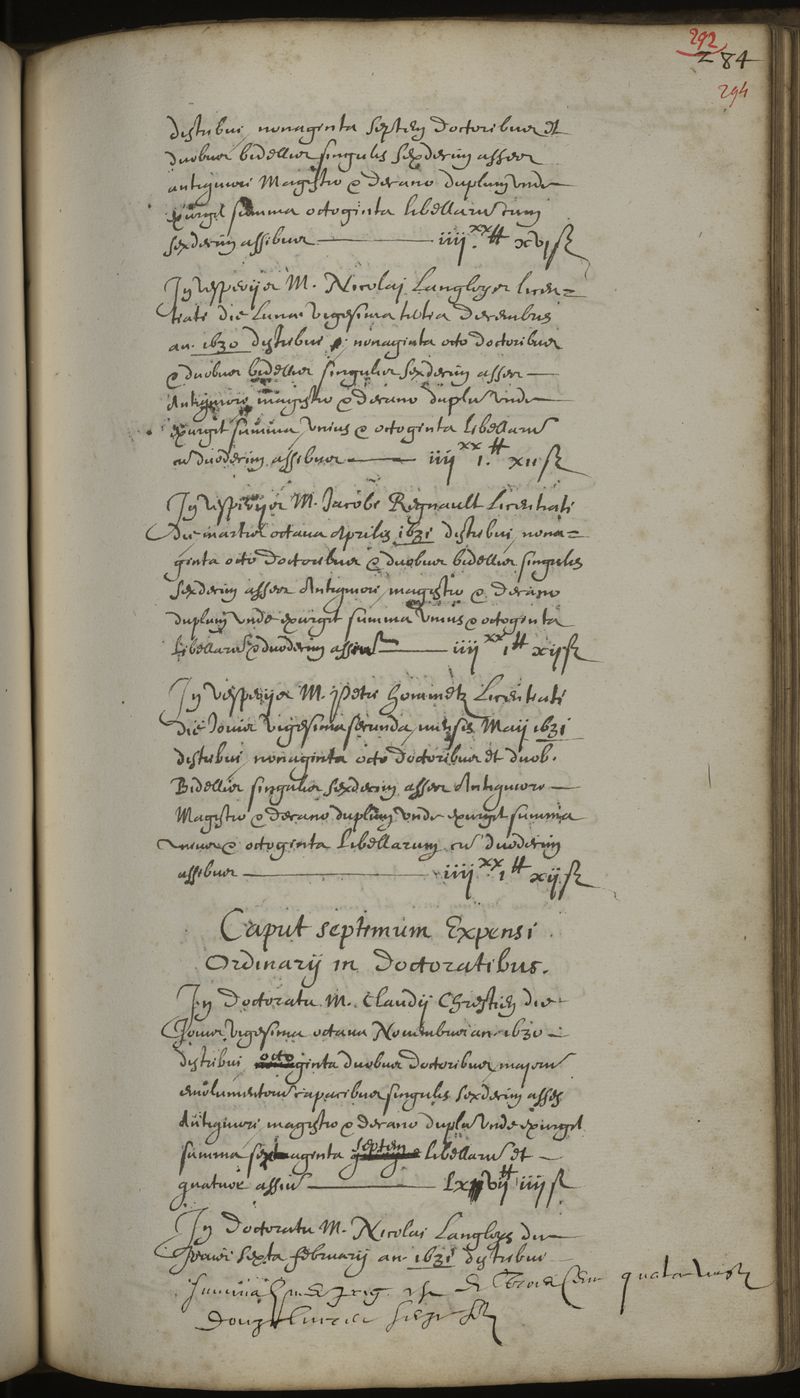 292
284
294
distribui nonaginta septem doctoribus et
duobus bidellis singulis sexdecim asses
antiquiori Magistro & decano duplum unde
exurgit summa octoginta libellarum cum
sexdecim assibus iiij xx ₶ xvj s
In vesperijs M. Nicolaj Langloys licen=
tiati die lunæ vigesima tertia decembris
an. 1630 distribui nonaginta octo doctoribus
& duobus bidellis singulis sexdecim asses
Antiquiori magistro & decano duplū unde
exurgit summa unius & octoginta libellarū
cū duodecim assibus iiij xx j ₶ xij s
In vesperijs M. Jacobi Regnault Licentiati
die martis octava Aprilis 1631 distribui nona=
ginta octo doctoribus & duobus bidellis singulis
sexdecim asses Antiquiori magistro & decano
duplum unde exurgit summa unius & octoginta
libellarū & duodecim assiū iiij xx j ₶ xij s
In vesperijs M. Petri hommetz Licentiati
die Jovis vigesima secunda mensis Maij 1631
distribui nonaginta octo doctoribus et duob.
Bidellis singulis sexdecim asses Antiquiori
Magistro & decano duplum unde exurgit summa
unius & octoginta libellarum cū duodecim
assibus iiij xx j ₶ xij s
Caput septimum Expensi
Ordinarij in Doctoratibus.
In Doctoratu M. Claudij Chrestien die
Jovis vigesima octava Novembris an. 1630
distribui octoginta duobus doctoribus majorū
emolumentorū capacibus singulis sexdecim asses
Antiquiori magistro & decano duplū unde exurgit
summa sexaginta septem libellarū et
quatuor assiū lxvij ₶ iiij s
In Doctoratu M. Nicolai Langloys die
Jovis sexta februarij an. 1631 distribui
Summa